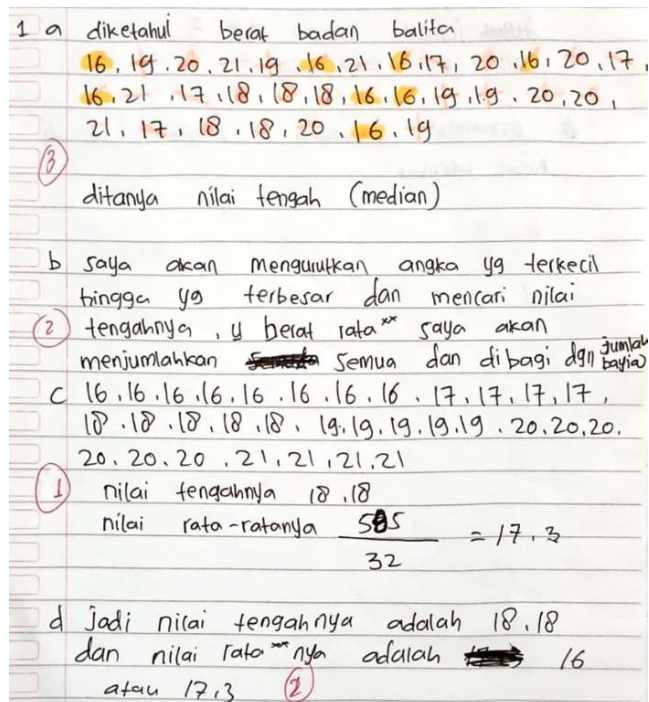 1 a diketahui berat badan balita
16, 19, 20, 21, 19, 16, 21, 16, 17, 20, 16, 20, 17,
16, 21, 17, 18, 18, 18, 16, 16, 19, 19, 20, 20,
21, 17, 18, 18, 20, 16, 19
3
ditanya nilai tengah (median)
b saya akan mengurutkan angka yg terkecil
hingga yg terbesar dan mencari nilai
2 tengahnya, y berat rata** saya akan
menjumlahkan semua dan dibagi dgn jumlah bayia
c 16, 16, 16, 16, 16, 16, 16, 16, 17, 17, 17, 17,
18, 18, 18, 18, 18, 19, 19, 19, 19, 19, 20, 20, 20,
20, 20, 20, 21, 21, 21, 21
1 nilai tengahnya 18, 18
nilai rata-ratanya 585/32 = 17,3
d jadi nilai tengahnya adalah 18, 18
dan nilai rata** nya adalah 16
atau 17,3 2